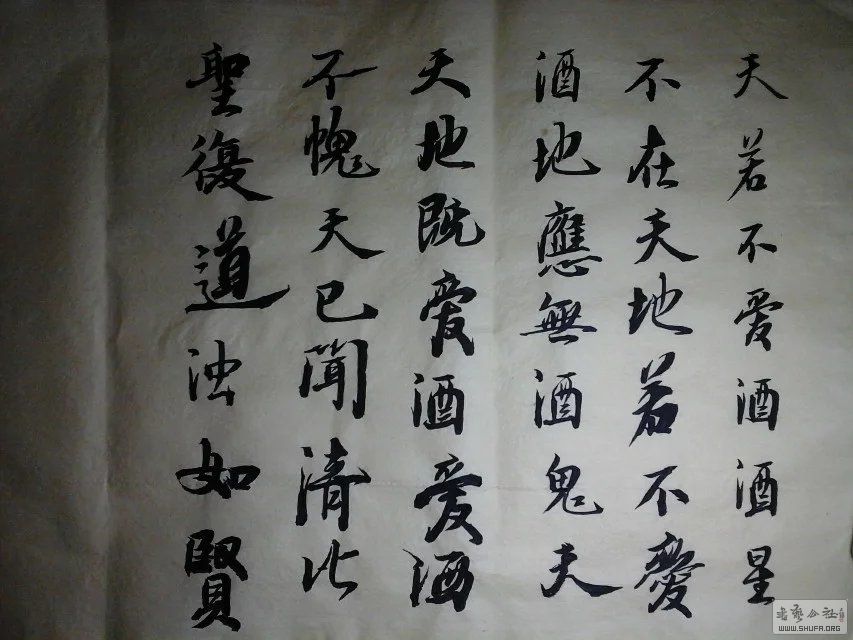 天若不爱酒酒星
不在天地若不愛
酒地應無酒鬼天
天地既爱酒爱酒
不愧天已聞清比
聖復道浊如賢
书艺公社
WWW.SHUFA.ORG